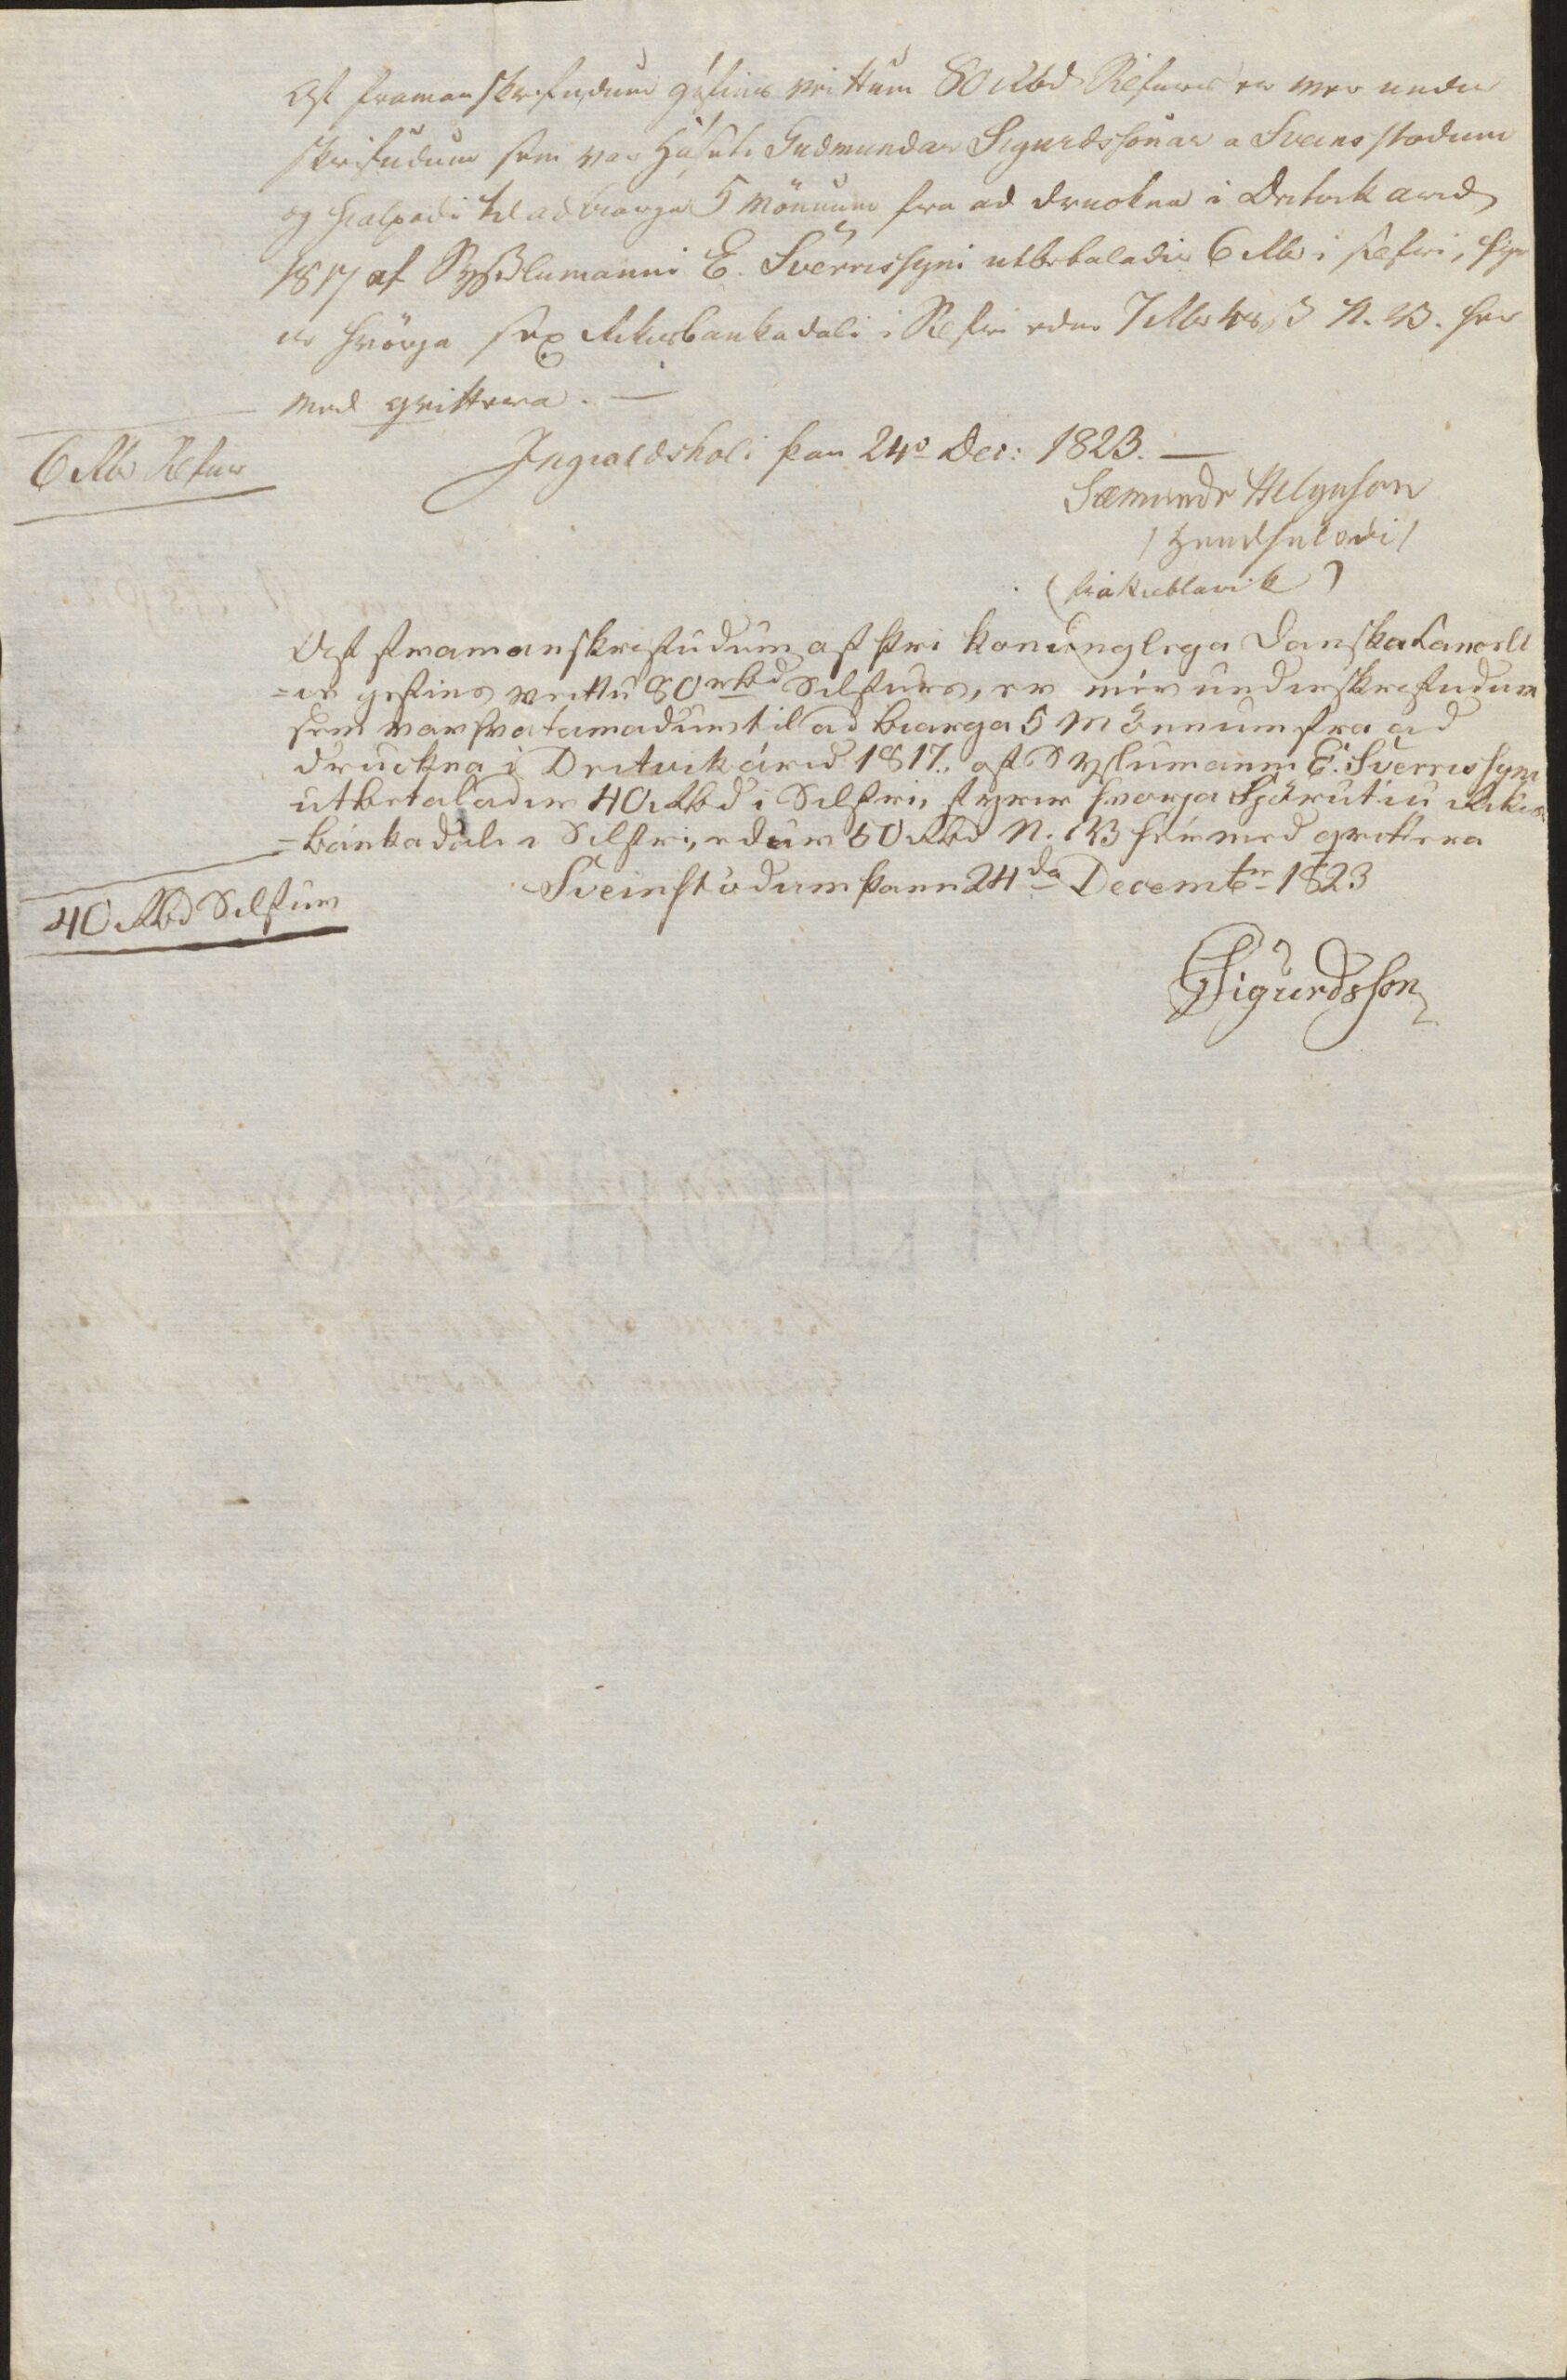 Af framanskrifudum géfins vittum 80 Rbd Silfurs er mer undir
skrifudum sem var Háseti Gudmundar Sigurdssonar a Sveinsstodum
og hialpadi til ad biarga 5 Mönnum fra ad druckna i Dritvik arid
1817 af Sysslumanni E. Sverrissyni utbetaladir 6 Rbd i Silfri, fyr
ir hvörja sex Rikisbankadali i Silfri edur 7 Rbd 48 β N. V. her
med qvittera. —
6 Rbd Silfur
Ingialdsholi þan 24d Dec: 1823. —
Sæmundr Helgason
/ Handsaladi /
( fra Kieblavik )
Af framanskrifudum af þvi konunglega Danska Cancelli
=ie gefins vittu 80 rbd Silfurs, er mér undirskrifudum
sem var hvatamadur til ad biarga 5 Mönnum fra ad
druckna i Dritvik árid 1817., af Syslumanni E. Sverrissyni
utbetaladir 40 Rbd i Silfri, fyrir hvorja fjörutiu Rikis
=bánkadali i Silfri, edur 50 Rbd N. V. hérmed qvittera
40 Rbd Silfur
Sveinstödum þann 24da Decembr 1823
GSigurdsson